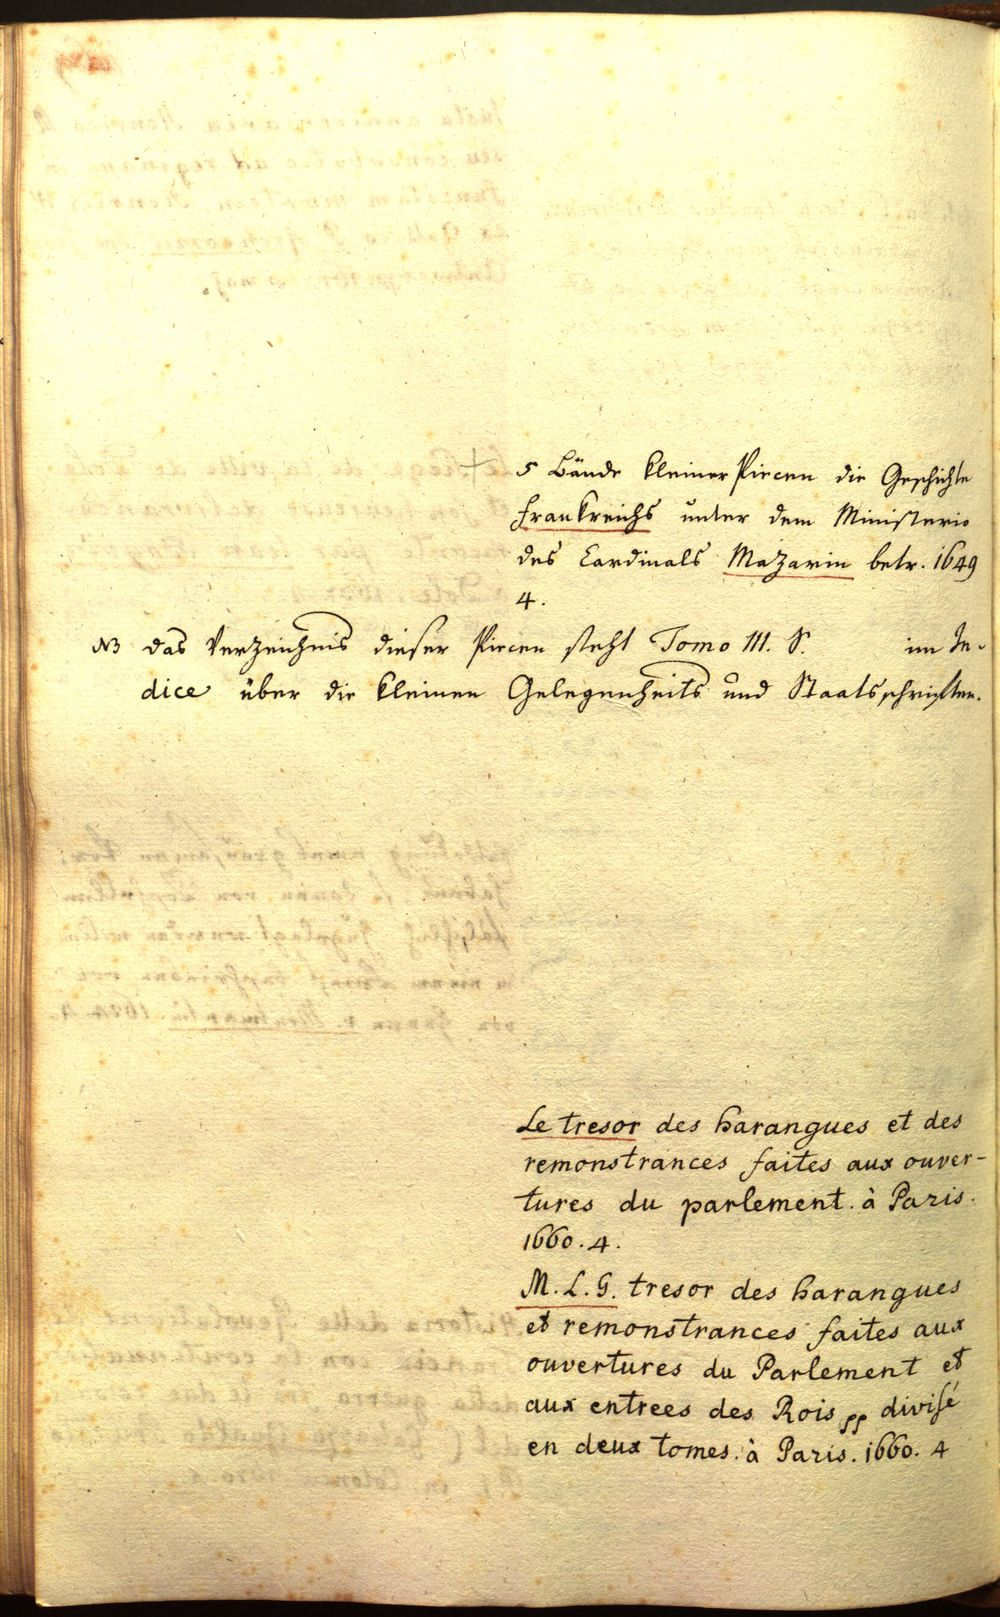 + 5 Bände kleiner Piecen die Geschichte
Frankreichs unter dem Ministerio
des Cardinals Mazarin betr. 1649
4.
NB das Verzeichnis dieser Piecen steht Tomo III. S. im In-
dice über die kleinen Gelegenheits und Staatsschriften.
Le tresor des harangues et des
remonstrances faites aux ouver-
tures du parlement. à Paris.
1660. 4.
M. L. G. tresor des harangues
et remonstrances faites aux
ouvertures du Parlement et
aux entrees des Rois pp divisé
en deux tomes. à Paris. 1660. 4